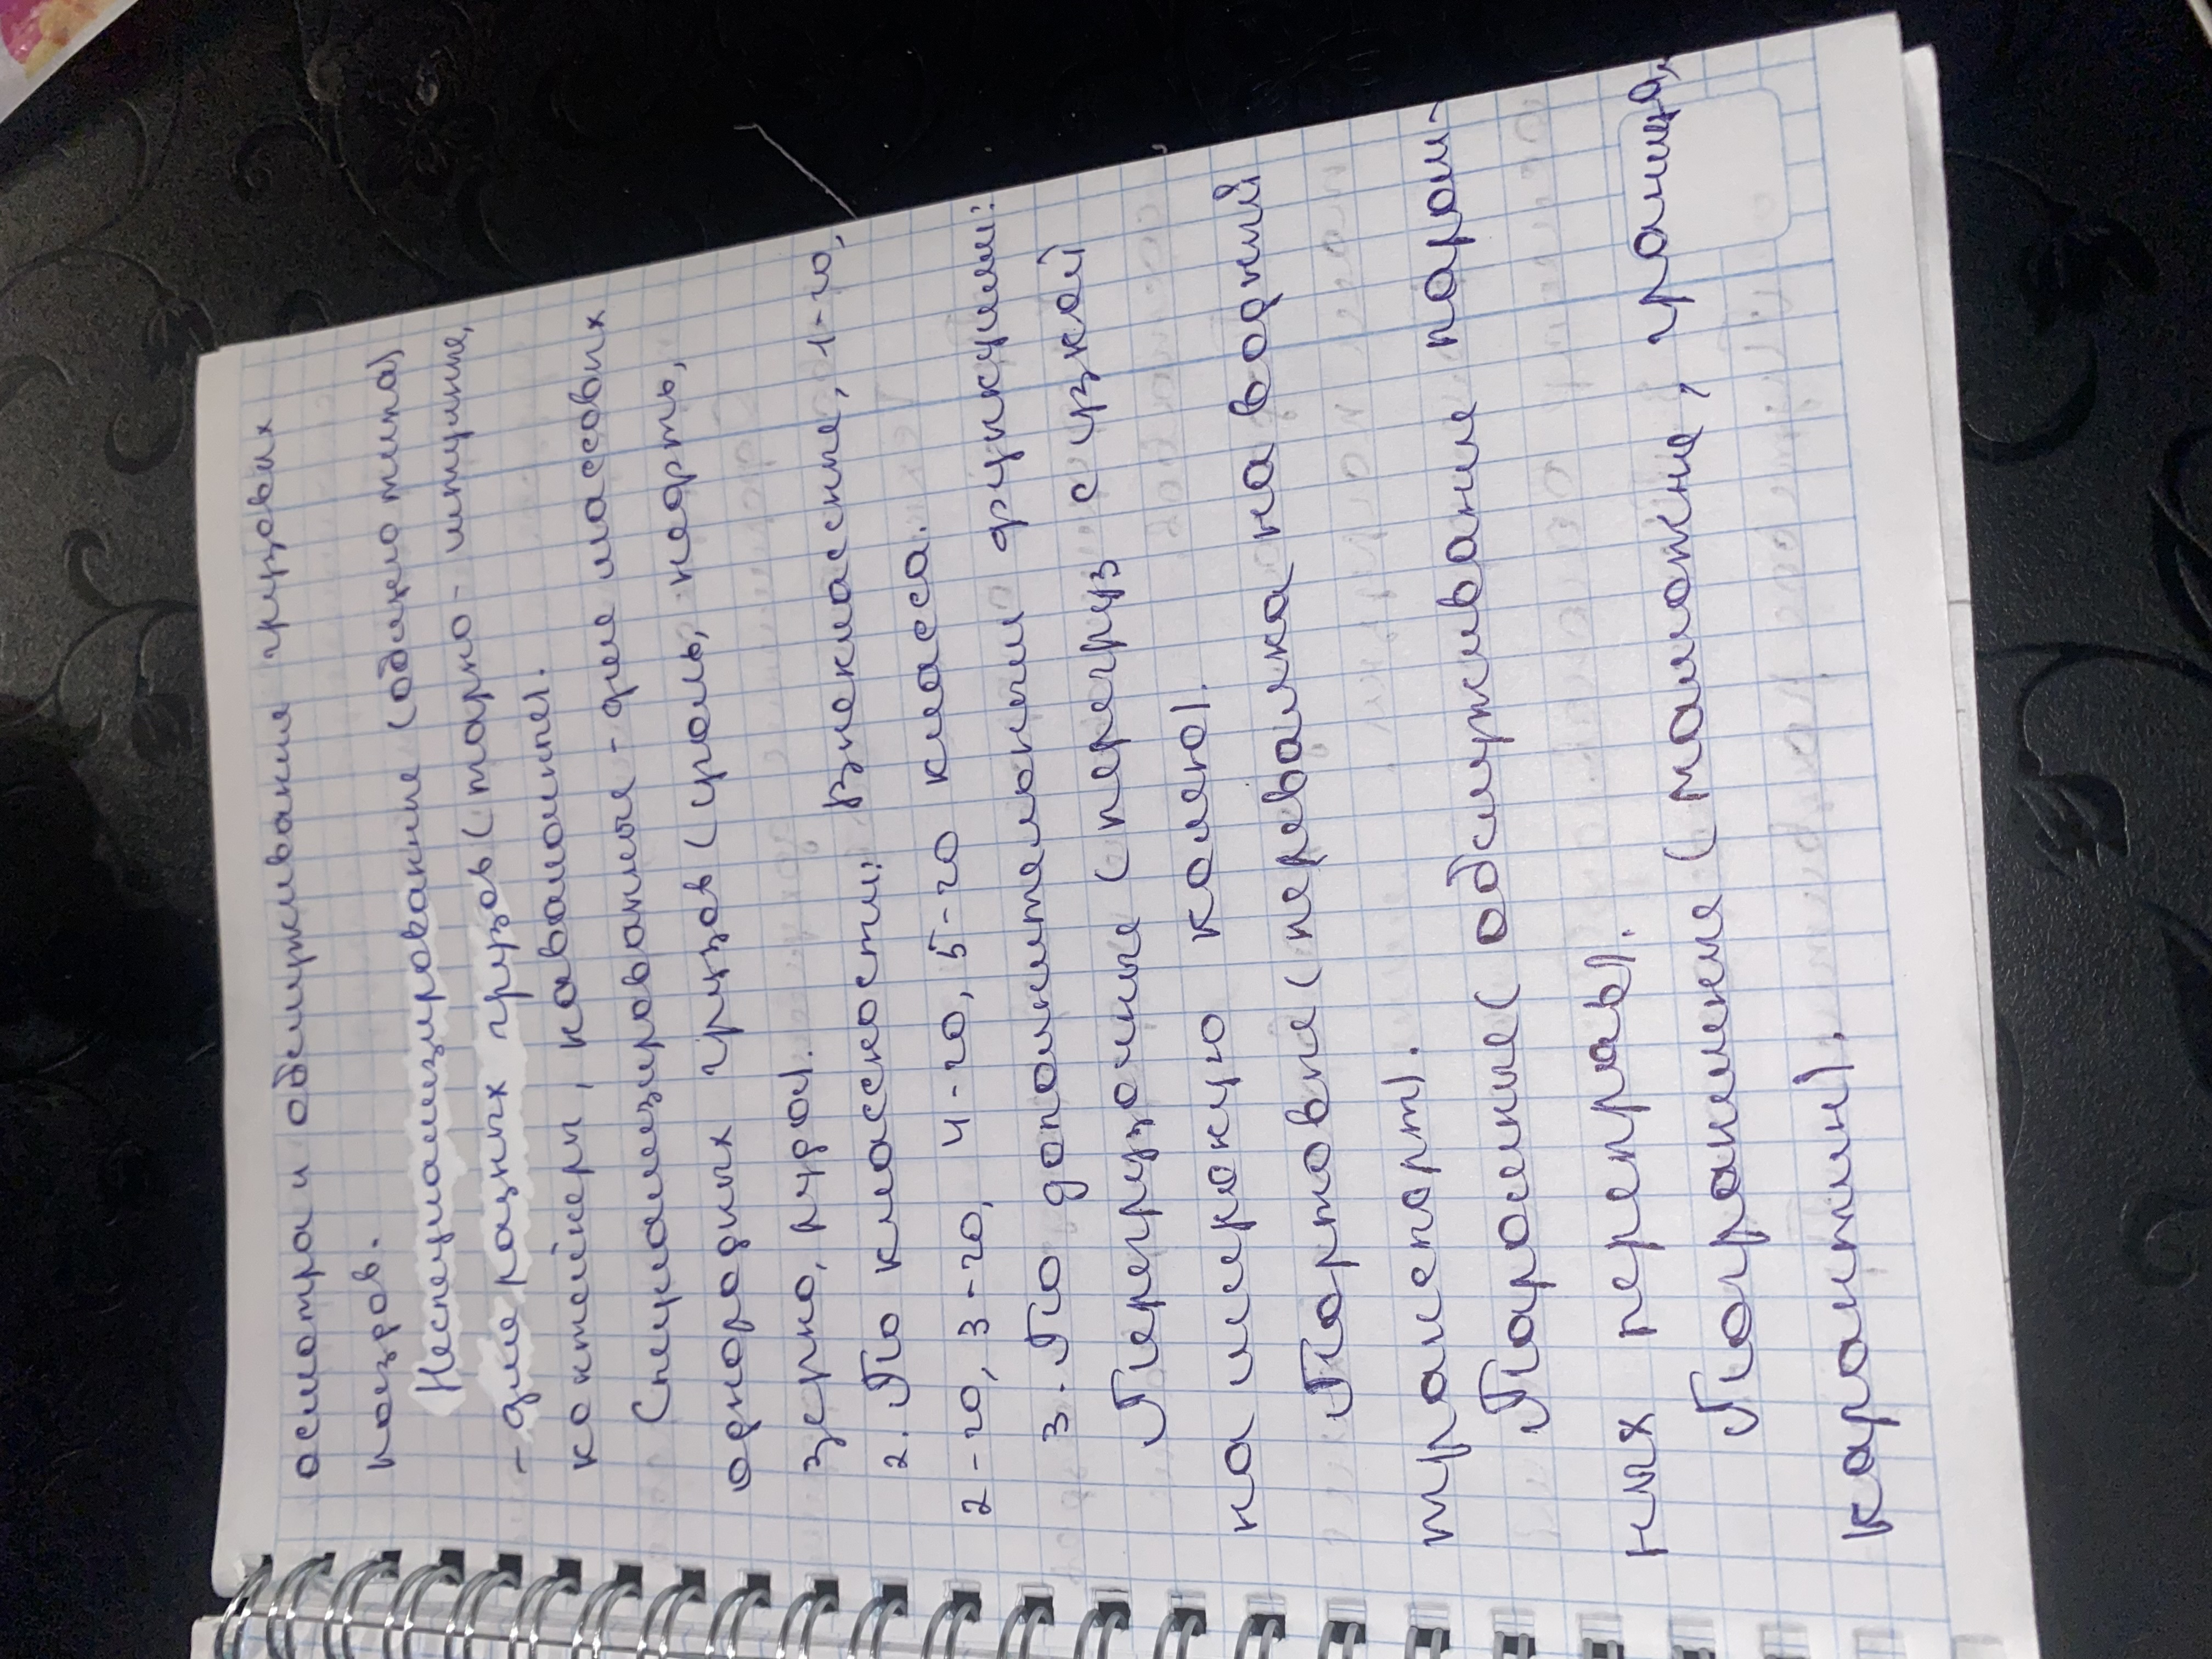 осмотра и обслуживание грузовых
поездов.
Неспециализирование (общего типа)
- для разных грузов (тарно - штучные,
контейнеры, навалочные).
Специализированные - для массовых
однородных грузов (уголь, нефть,
зерно, руда).
2. По классности: Внеклассные, 1-го,
2-го, 3-го, 4-го, 5-го класса.
3. По дополнительным функциям:
Перегрузочные (перегруз с узкой
на широкую колею).
Портовые (перевалка на водный
транспорт).
Паромные (обслуживание паром-
ных переправ).
Пограничные (таможне, граница,
карантин).